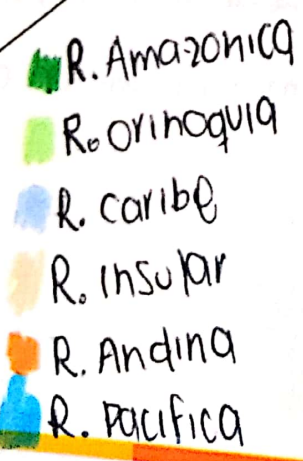 R. Amazonica
R. orinoquia
R. caribe
R. insular
R. Andina
R. pacifica